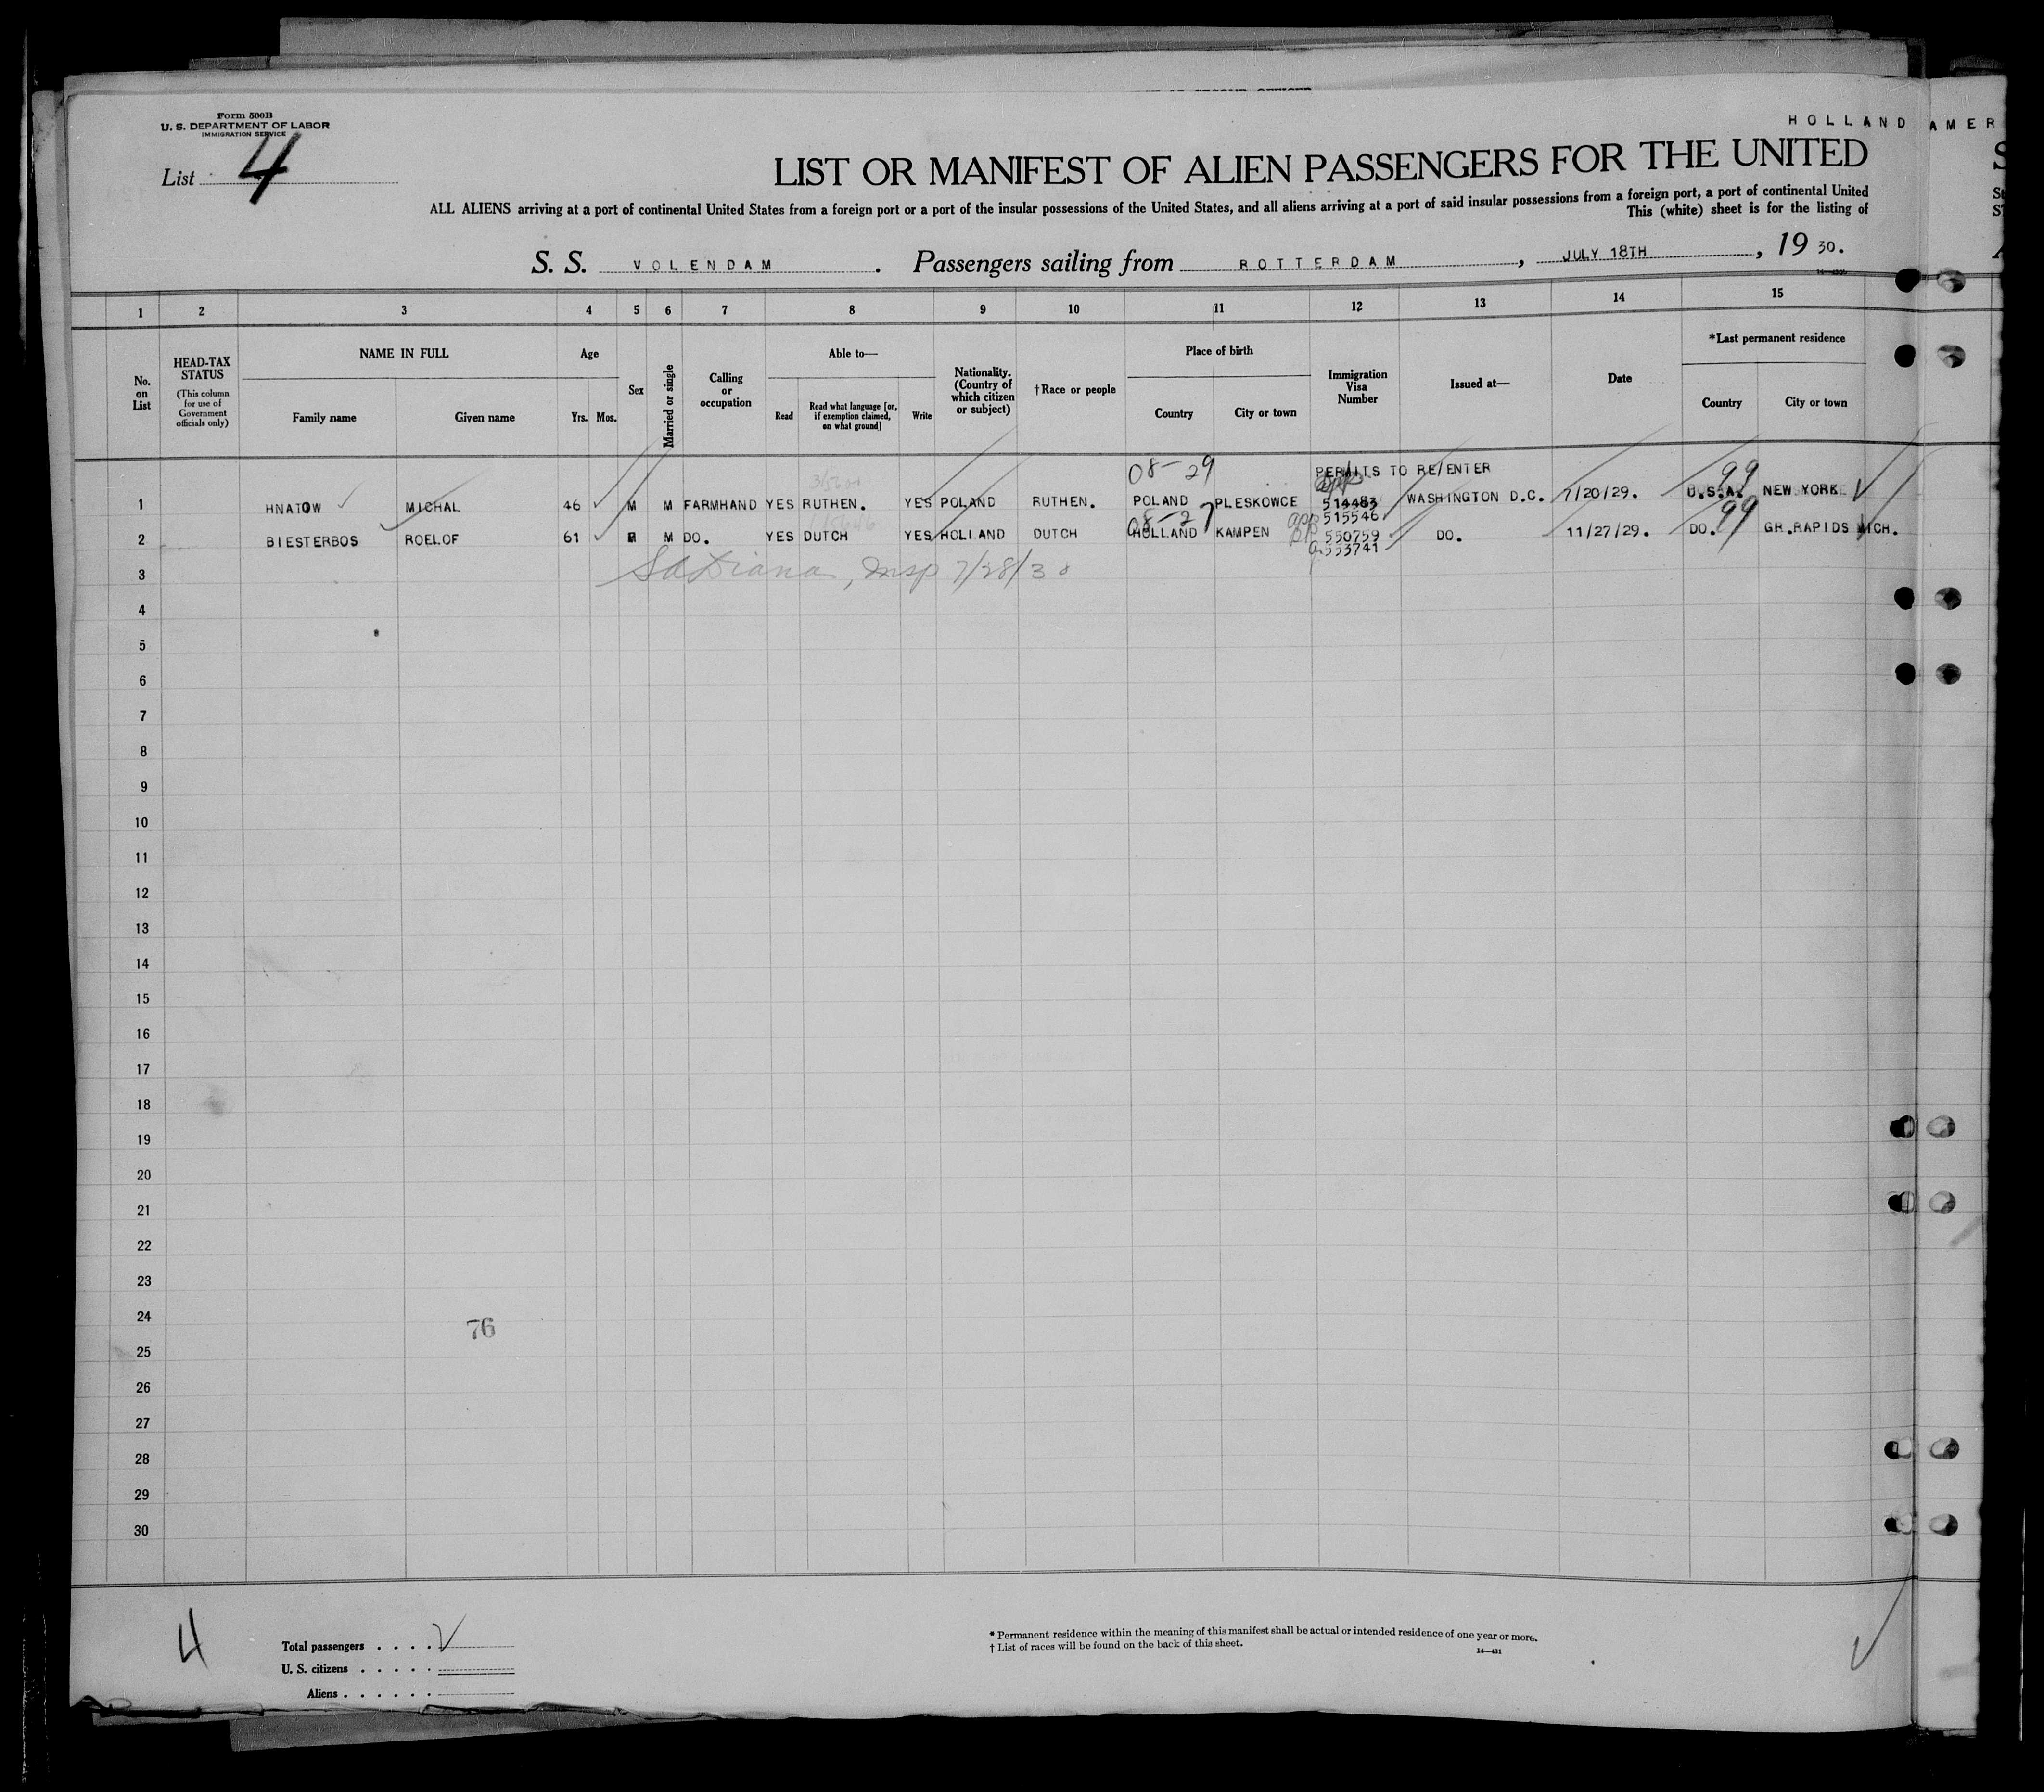 Form 500B
U. S. DEPARTMENT OF LABOR
IMMIGRATION SERVICE
HOLLAND AMER
List 4
LIST OR MANIFEST OF ALIEN PASSENGERS FOR THE UNITED
S
ALL ALIENS arriving at a port of continental United States from a foreign port or a port of the insular possessions of the United States, and all aliens arriving at a port of said insular possessions from a foreign port, a port of continental United
This (white) sheet is for the listing of
S. S. VOLENDAM . Passengers sailing from ROTTERDAM , JULY 18TH , 19 30.
1 2 3 4 5 6 7 8 9 10 11 12 13 14 15
No. on List
HEAD-TAX STATUS (This column for use of Government officials only)
NAME IN FULL Family name Given name
Age Yrs. Mos.
Sex
Married or single
Calling or occupation
Able to— Read Read what language [or, if exemption claimed, on what ground] Write
Nationality. (Country of which citizen or subject)
†Race or people
Place of birth Country City or town
Immigration Visa Number
Issued at—
Date
*Last permanent residence Country City or town
08-29 PERMITS TO RE/ENTER 99
1 HNATOW MICHAL 46 M M FARMHAND YES RUTHEN. YES POLAND RUTHEN. POLAND PLESKOWCE 514483 WASHINGTON D.C. 7/20/29. U.S.A. NEW YORK
08-27 app 515546 99
2 BIESTERBOS ROELOF 61 M M DO. YES DUTCH YES HOLLAND DUTCH HOLLAND KAMPEN 550759 DO. 11/27/29. DO. GR.RAPIDS MICH.
553741
3 Insp 7/28/30
4
5
6
7
8
9
10
11
12
13
14
15
16
17
18
19
20
21
22
23
24
76
25
26
27
28
29
30
4
Total passengers . . . .
U. S. citizens . . . . .
Aliens . . . . . .
* Permanent residence within the meaning of this manifest shall be actual or intended residence of one year or more.
† List of races will be found on the back of this sheet.
14—421